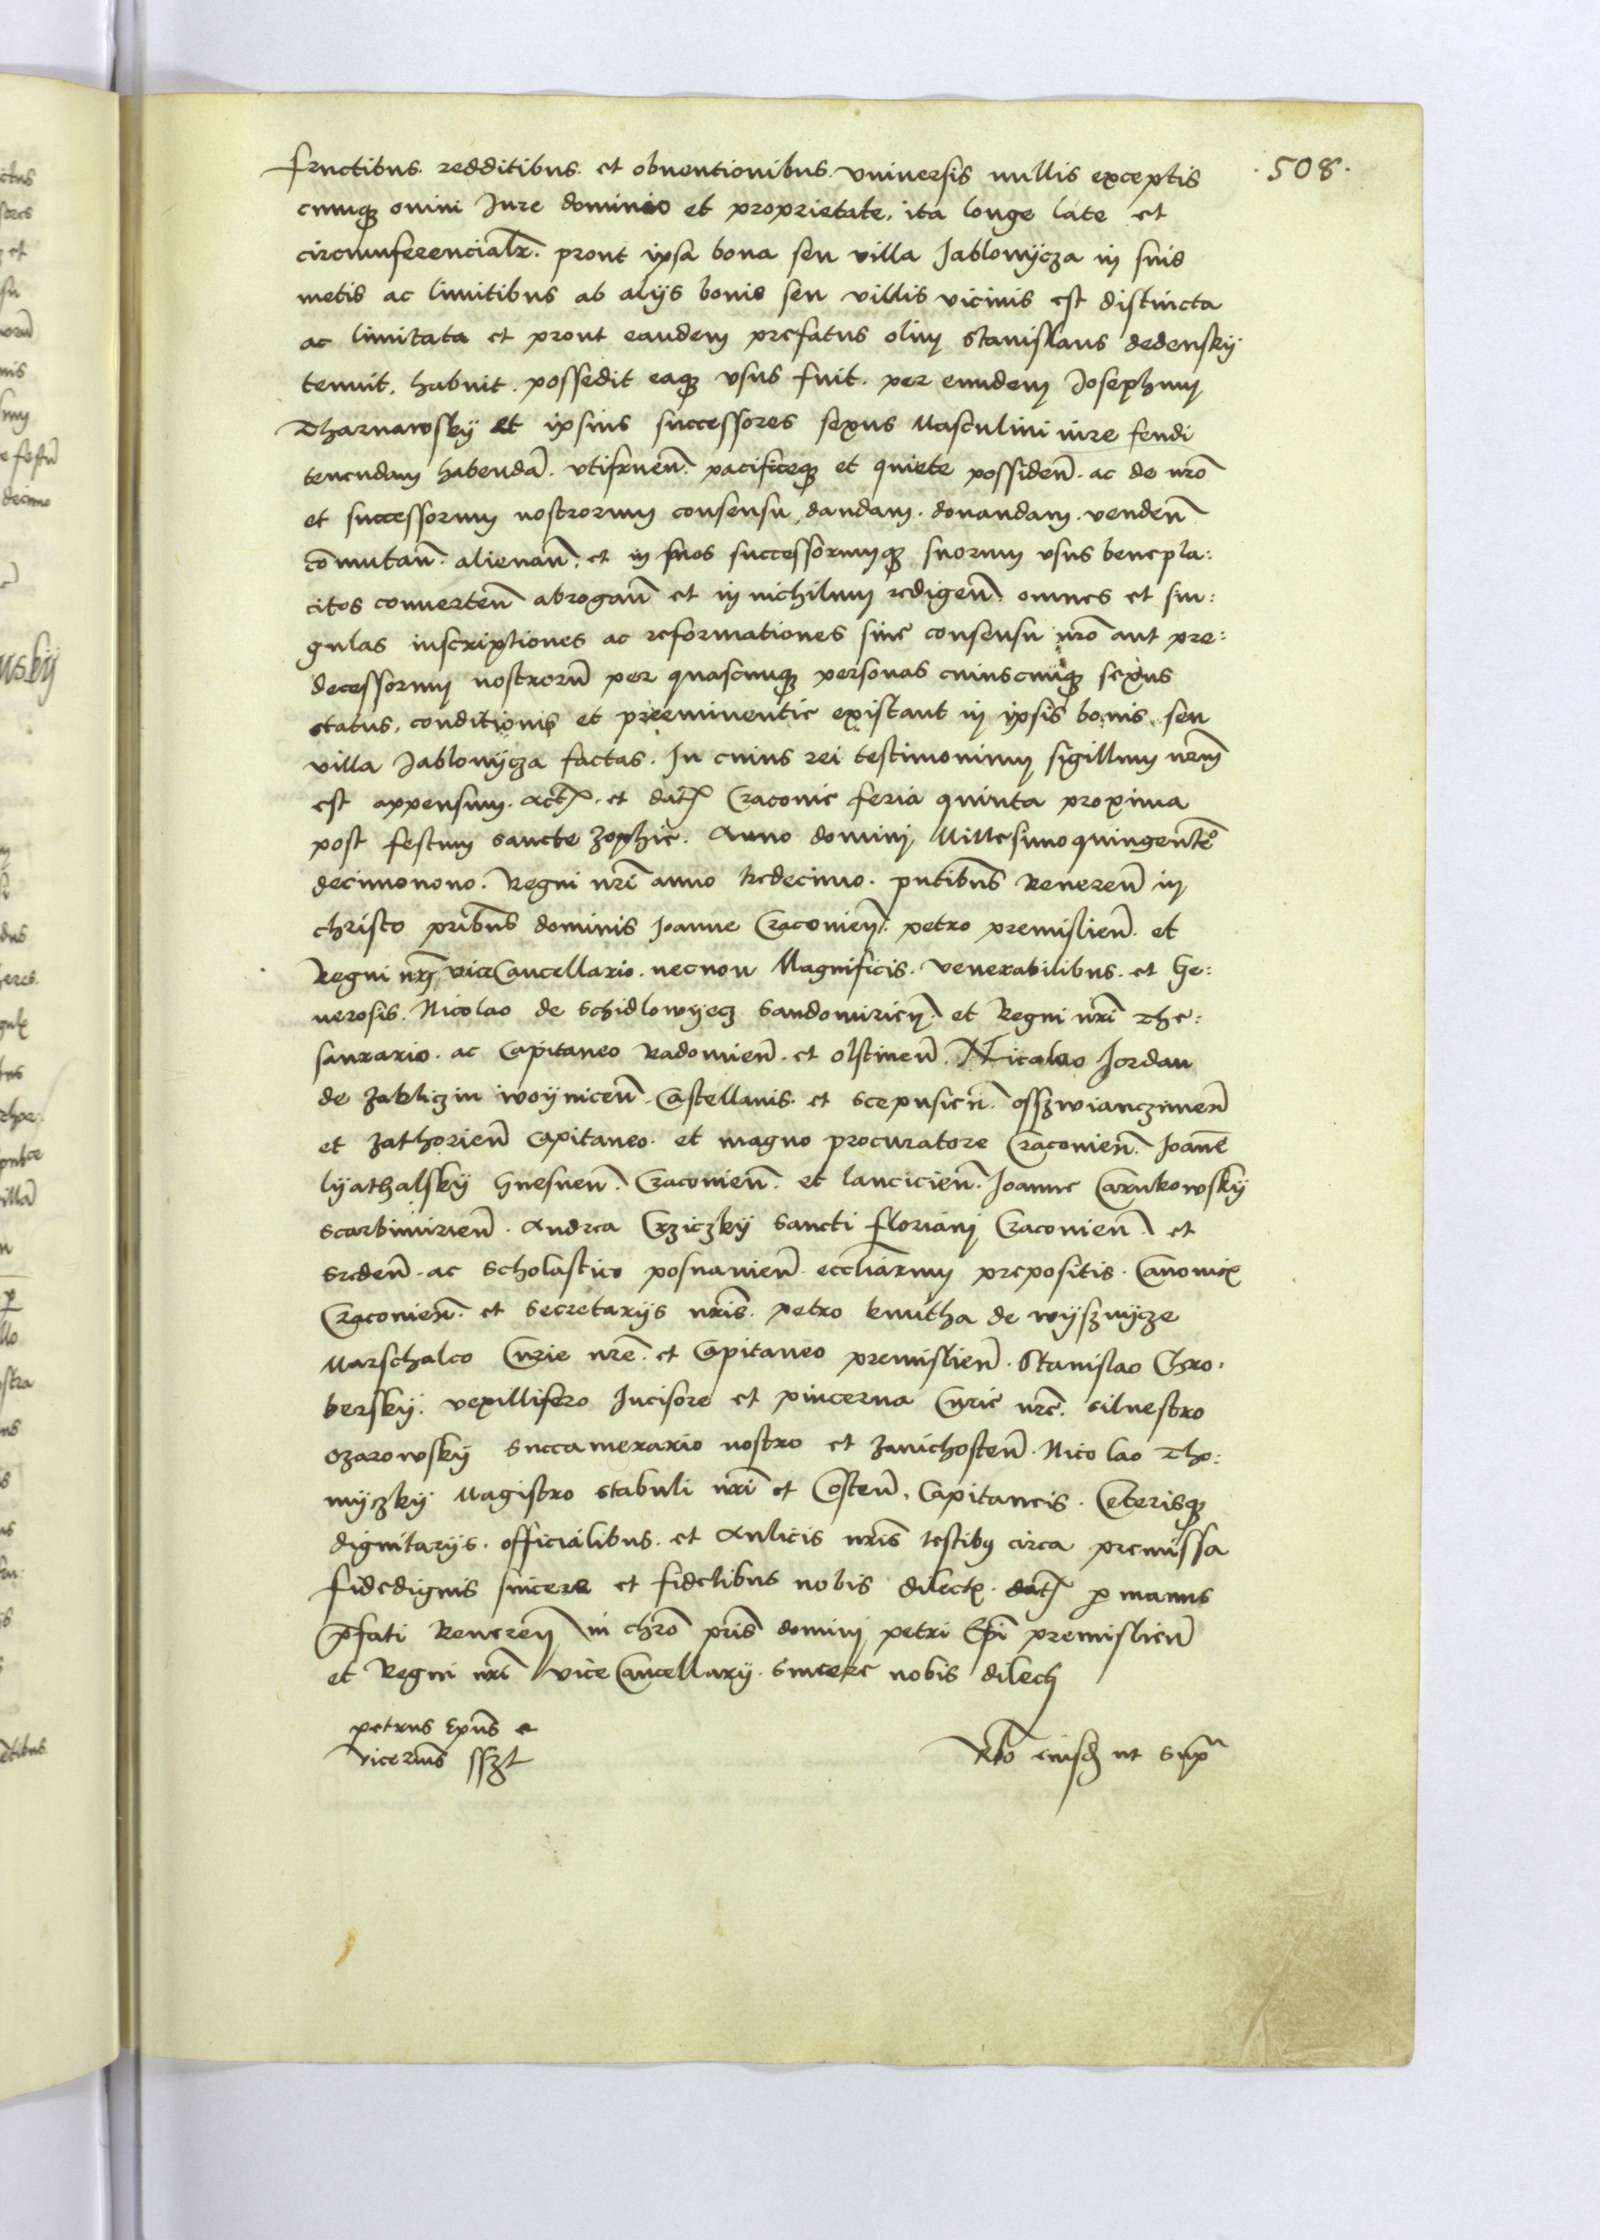 .508.
fructibus. redditibus. et obuentionibus. vniuersis nullis exceptis
cumq̃ omni Jure dominio et proprietate, ita longe late et
circumferencialr̃. prout ipsa bona seu villa Jablonycza in suis
metis ac limitibus ab alijs bonis seu villis vicinis est distincta
ac limitata et prout eandem prefatus olim Stanislaus dedensky
tenuit, habuit. possedit eaq̃ vsus fuit. per eundem Josephum
Tharnawsky et ipsius successores sexus Masculini iure feudi
tenendam habendã. vtifruen̄. pacificeq̃ et quiete possiden̄. ac de nr̃o
et successorum nostrorum consensu, dandam. donandam. venden̄
com̄utan̄. alienan̄. et in suos successorumq̃ suorum vsus benepla:
citos conuerten̄ abrogan̄ et in nichilum redigen̄. omnes et sin:
gulas inscriptiones ac reformationes sine consensu nr̃o aut pre:
decessorum nostrorū per quascunq̃ personas cuiuscunq̃ sexus
status, conditionis et preeminentie existant in ipsis bonis seu
villa Jablonycza factas. In cuius rei testimonium sigillum nr̃m
est appensum. Act̃. et dat̃ Cracouie feria quinta proxima
post festum sancte Zophie. Anno domini Millesimoquingentẽo
decimonono. Regni nr̃i anno tredecimo. pñtibus Reueren̄ in
christo pr̃ibus dominis Joanne Cracouien̄. petro premislien̄. et
Regni nr̃i viceCancellario. necnon Magnificis. Venerabilibus. et Ge:
nerosis. Nicolao de Schidlowyecz Sandomirien̄. et Regni nr̃i The:
saurario. ac Capitaneo Radomien̄. et olstinen̄. Nicolao Jordan
de Zakliczin woynicen̄. Castellanis. et Scepusien̄. osszwianczimen̄
et Zathorien̄ Capitaneo. et magno procuratore Cracouien̄. Joañe
lyathalsky Gnesnen̄. Cracouien̄. et lancicien̄. Joanne Carnkowsky
Scarbimirien̄. Andrea Crziczky sancti floriani Cracouien̄. et
Sreden̄. ac Scholastico posnanien̄. eccl̃iarum prepositis. Canonic̃
Cracouien̄. et Secretarijs nr̃is. petro kmitha de wysznycze
Marschalco Curie nr̃e. et Capitaneo premislien̄. Stanislao Chro:
bersky. vexillifero Incisore et pincerna Curie nr̃e. siluestro
Ozarowsky Succamerario nostro et Zauichosten̄. Nicolao Tho:
myczky Magistro stabuli nr̃i et Costen̄, Capitaneis. Ceterisq̃
dignitarijs. officialibus. et Aulicis nr̃is testibus circa premissa
fidedignis sincere et fidelibus nobis dilect̃. dat̃ p̱ manus
p̃fati Reueren̄ in chr̃o pr̃is domini petri Ep̃i premislien̄
et Regni nr̃i viceCancellarij. sincere nobis dilecti
petrus Ep̃us et
vicec̃rius sszt
Rl̃o eiusd̃ ut supr̃a